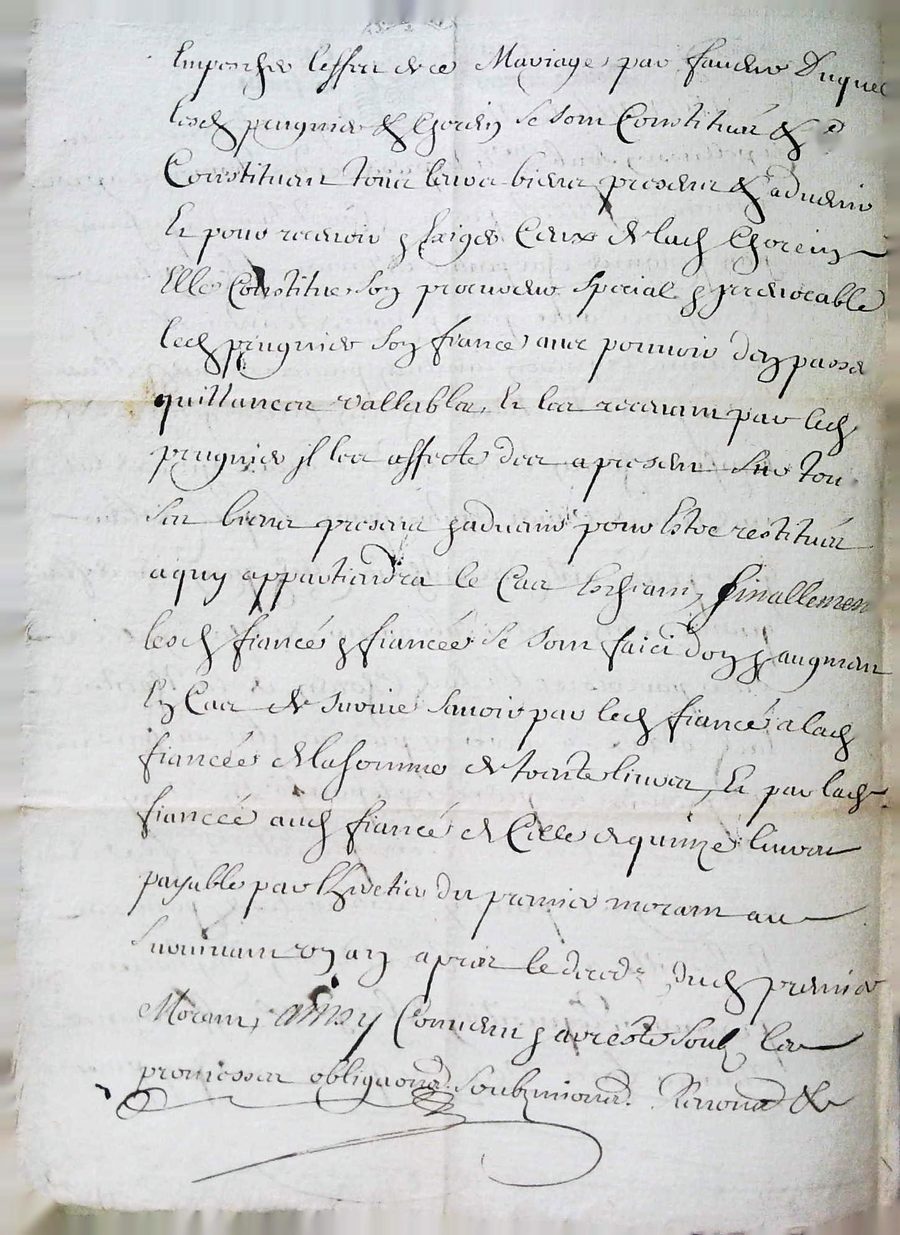 Empescher leffect de ce Mariage par faueur Duquel
lesd prugnier & Chorein se sont Constitués & se
Constituent tous leurs biens presens & aduenir
Et pour receuoir & exiger Ceux de lad Chorein
Elle Constitue son procureur special & irreuocable
led prugnier son fiancé auec pouuoir den passer
quittances vallables, Et les receuant par led
prugnier il les affecte des apresent sur tous
ses biens presens & aduenir pour Estre restitués
a quy appartiendra le Cas Escheant, finallement
lesd fiancé & fiancée se sont faict don & augment
En Cas de suruie sauoir par led fiancé a lad
fiancée de la somme de trente liures, Et par lad
fiancée aud fiancé de Celle de quinze liures
payable par lheretier du premier mourant au
suruiuant un an apres le deceds dud premier
Mourant, ainsy Conuenu & aresté soubz les
promesses obligaons. soubzmissions. Renons. &